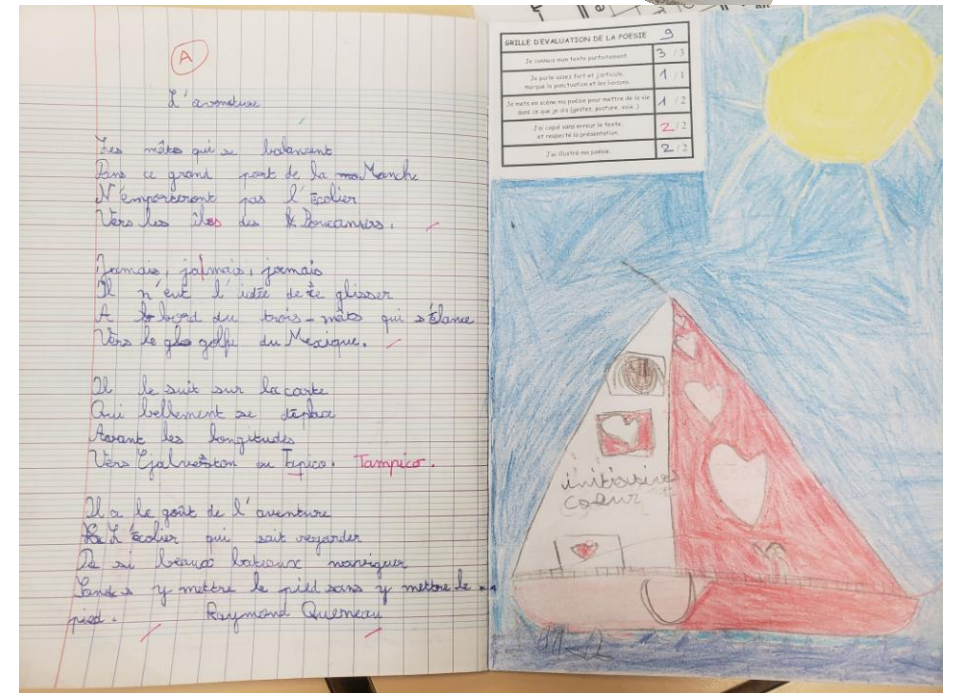 A
L'aventure
Les mâts qui se balancent
Dans ce grand port de la Manche
N'emporteront pas l'Écolier
Vers les îles des Boucaniers.
Jamais, jamais, jamais
Il n'eut l'idée de se glisser
A bord du trois-mâts qui s'élance
Vers le golfe du Mexique.
Il le suit sur la carte
Qui bellement se déplace
Avant les longitudes
Vers Galveston ou Tapico. Tampico.
Il a le goût de l'aventure
L'Écolier qui sait regarder
De si beaux bateaux naviguer
Sans y mettre le pied sans y mettre le
pied. Raymond Queneau
GRILLE D'EVALUATION DE LA POESIE 9
Je connais mon texte parfaitement. 3 /3
Je parle assez fort et j'articule,
marque la ponctuation et les liaisons. 1 /1
Je mets en scène ma poésie pour mettre de la vie
dans ce que je dis (gestes, posture, voix..) 1 /2
J'ai copié sans erreur le texte,
et respecté la présentation. 2 /2
J'ai illustré ma poésie. 2 /2
initiatives
coeur